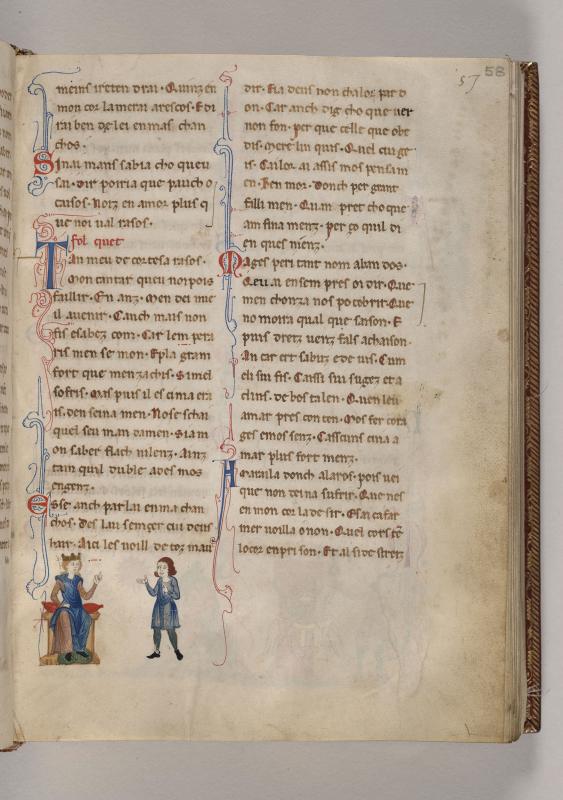 57
58
meins ireten drai · Quinz en
mon cor la merai arescos · E di
rai ben de lei en mas chan
chos ·
Sinai mans sabia cho queu
sai · Dir poiria que paucho
caisos · Noiz en amor plus q
ue noi ual rasos ·
fol quet
Tan meu de cortesa rasos ·
Mon cantar queu noi pois
faillir · En anz · Men dei me
il auenir · Cauch mais non
fis esabez com · Car lem pera
ris men se mon · E pla gram
fort que menzachis · Si mel
sofris · Mas puis il es cima era
is · den seina men · No se schai
quel seu man damen · Si am
on saber flach nilenz · Ainz
tain quil duble a des mos
engenz ·
Esse anch parlai en ma chan
chos · Des lau semger cui deus
hair · Aici les uoill de cor mau
dir · Ja deus non cha los par d
on · Car anch dig cho que uer
non fon · per que celle que obe
dis · Mere lin quis · Quel cuige
is · Cailor ai assis mos pensam
en · Ben mor · Donch per grant
filli men · Quam pret cho que
am fina menz · per ço quil di
en ques menz ·
Mages peri tant nom aban dos ·
Qeu ai en sem pres oi dir · Que
men chonza nos po cobrir · Que
no moira qual que saison · E
puis dretz uenz fals achaison ·
An car ert sabuz e de uis · Cum
eli sui fis · Caissi sui sugez et a
clins · de bos talen · Quen leu
amar pres con ten · Mos fer cora
ges emos senz · Cass cuns cui a a
mar plus fort menz ·
A moraila donch alaros · pois uei
que non deina sufrir · Que nes
en mon cor la de sir · E sai ca far
mer uoilla o non · Quel cors tē
locor en pri son · Et al si de stretz